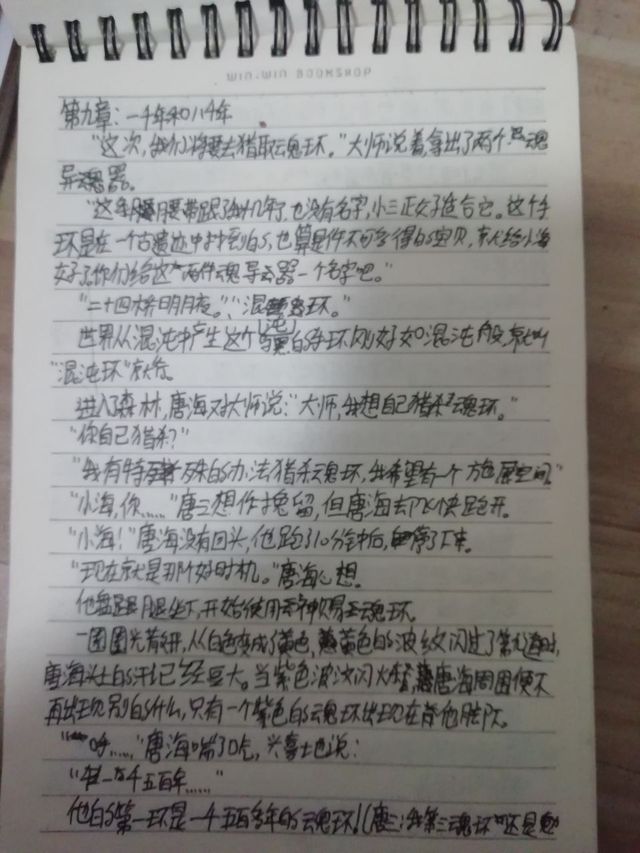 WIN-WIN BOOKSHOP
第九章：一千年和八千年
"这次，我们将要去猎取魂环。"大师说着，拿出了两个魂
导魂器。
"这条腰带跟了我几年了，也没有名字，小三正好适合它。这个手
环是在一个古遗迹中找到的，也算是件不可多得的宝贝，就给小海
好了，你们给这两件魂导器一个名字吧。"
"二十四桥明月夜。""混沌环。"
世界从混沌中产生 这个 手环 刚好如混沌 就叫
"混沌环"就名。
进入了森林，唐海对大师说："大师，我想自己猎杀魂环。"
"你自己猎杀？"
"我有特殊的办法猎杀魂环，我希望有一个 空间。"
"小海，你……"唐三想作挽留，但唐海却飞快跑开。
"小海！"唐海没有回头，他跑了10分钟后，停了下来。
"现在就是那个好时机。"唐海心想。
他盘腿坐下，开始使用 魂环。
一圈圈光 ，从白色变成了黄色，黄色的波纹闪过了第九道时，
唐海头上的汗已经豆大。当紫色波纹闪 唐海周围便不
再出现别的什么，只有一个紫色的魂环出现在 他 。
"呼……"唐海喘了口气，兴奋地说：
"一千五百年……"
他的第一环是一千五百多年的魂环！（唐三：我第三魂环 还是